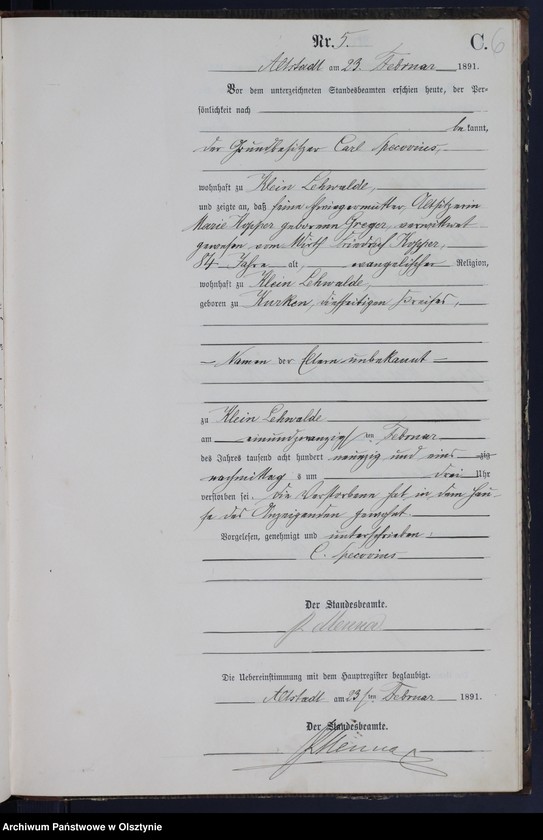 Nr. 5.
C. 6
Altstadt am 23. Februar 1891.
Vor dem unterzeichneten Standesbeamten erschien heute, der Per-
sönlichkeit nach
bekannt,
der Grundbesitzer Carl
wohnhaft zu Klein Lehwalde,
und zeigte an, daß seine Schwiegermutter, Altsitzerin
Marie Kopper geborenen Greger, verwittwet
gewesen vom Wirth Friedrich Kopper,
84 Jahre alt, evangelischer Religion,
wohnhaft zu Klein Lehwalde,
geboren zu Kurken, diesseitigen Kreises,
— Namen der Eltern unbekannt —
zu Klein Lehwalde
am einundzwanzigsten Februar
des Jahres tausend acht hundert neunzig und eins
nachmittags um drei Uhr
verstorben sei. Die Verstorbene hat in dem Hau-
se des Anzeigenden gewohnt.
Vorgelesen, genehmigt und unterschrieben:
C.
Der Standesbeamte.
Die Uebereinstimmung mit dem Hauptregister beglaubigt.
Altstadt am 23ten Februar 1891.
Der Standesbeamte.
Archiwum Państwowe w Olsztynie